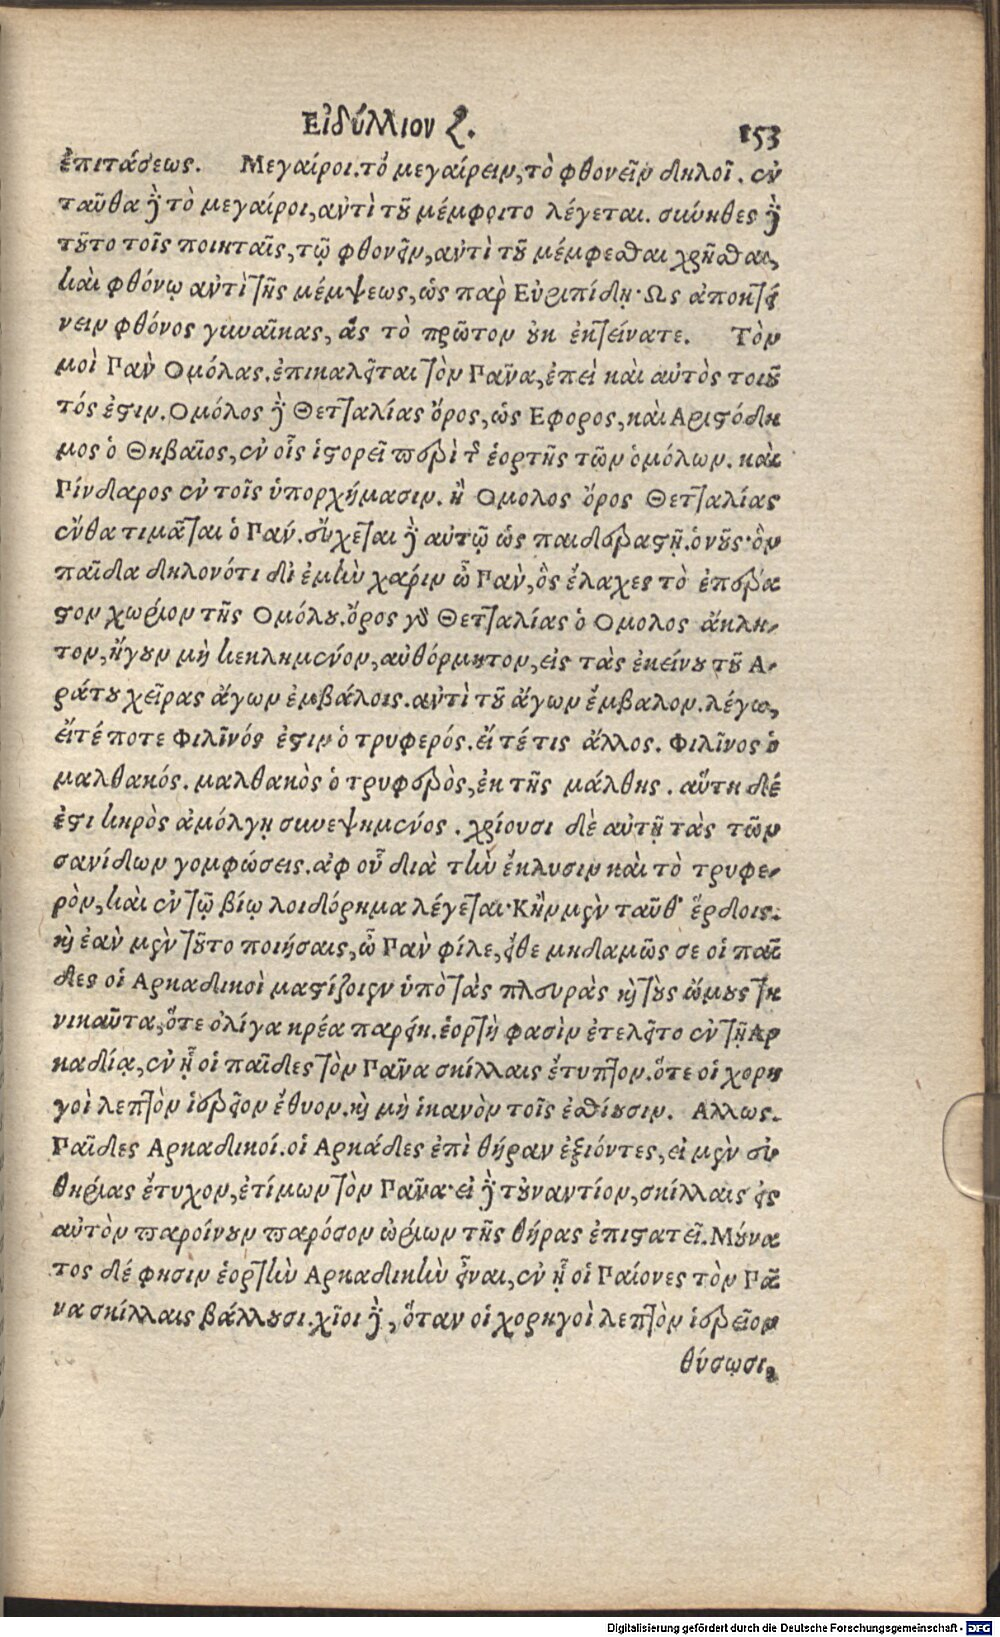 Εἰδύλλιον ζ. 153
ἐπιτάσεως. Μεγαίροι. τὸ μεγαίρειν, τὸ φθονεῖν δηλοῖ. ἐν
ταῦθα δὲ τὸ μεγαίροι, ἀντὶ τοῦ μέμφοιτο λέγεται. σύνηθες δὲ
τοῦτο τοῖς ποιηταῖς, τῷ φθονεῖν, ἀντὶ τοῦ μέμφεσθαι χρῆσθαι,
καὶ φθόνῳ ἀντὶ τῆς μέμψεως, ὡς παρ Εὐριπίδῃ· Ως ἀποκτεί
νειν φθόνος γυναῖκας, ἃς τὸ πρῶτον οὐκ ἐκτείνατε. Τὸν
μοὶ Παν Ομόλας. ἐπικαλεῖται τὸν Πᾶνα, ἐπεὶ καὶ αὐτὸς τοιοῦ
τός ἐστιν. Ομόλος δὲ Θετταλίας ὄρος, ὡς Εφορος, καὶ Αριστόδη
μος ὁ Θηβαῖος, ἐν οἷς ἱστορεῖ περὶ τῆς ἑορτῆς τῶν ὁμόλων. καὶ
Πίνδαρος ἐν τοῖς ὑπορχήμασιν. ἢ Ομολος ὄρος Θετταλίας
ἔνθα τιμᾶται ὁ Παν. εὔχεται δὲ αὐτῷ ὡς παιδεραστῇ. ὁ νοῦς· ὃν
παῖδα δηλονότι δι ἐμὴν χάριν ὦ Παν, ὃς ἔλαχες τὸ ἐπέρα
στον χωρίον τῆς Ομόλου. ὄρος γὰρ Θετταλίας ὁ Ομολος ἄκλη-
τον, ἤγουν μὴ κεκλημένον, αὐθόρμητον, εἰς τὰς ἐκείνου τοῦ Α-
ράτου χεῖρας ἄγων ἐμβάλοις. ἀντὶ τοῦ ἄγων ἔμβαλον. λέγω,
εἴτέ ποτε Φιλῖνός ἐστιν ὁ τρυφερός. εἴ τέ τις ἄλλος. Φιλῖνος ὁ
μαλθακός. μαλθακὸς ὁ τρυφερὸς, ἐκ τῆς μάλθης. αὕτη δέ
ἐστι κηρὸς ἀμόλγῃ συνεψημένος. χρίουσι δὲ αὐτῇ τὰς τῶν
σανίδων γομφώσεις. ἀφ οὗ διὰ τὴν ἔκλυσιν καὶ τὸ τρυφε-
ρὸν, καὶ ἐν τῷ βίῳ λοιδόρημα λέγεται. Κἢν μὲν ταῦθ' ἕρδοις.
καὶ ἐὰν μὲν τοῦτο ποιήσαις, ὦ Παν φίλε, εἴθε μηδαμῶς σε οἱ παῖ
δες οἱ Αρκαδικοὶ μαστίζοιεν ὑπὸ τὰς πλευρὰς καὶ τοὺς ὤμους τη
νικαῦτα, ὅτε ὀλίγα κρέα παρείη. ἑορτὴ φασὶν ἐτελεῖτο ἐν τῇ Αρ
καδίᾳ, ἐν ᾗ οἱ παῖδες τὸν Πᾶνα σκίλλαις ἔτυπτον. ὅτε οἱ χορη
γοὶ λεπτὸν ἱερεῖον ἔθυον. καὶ μὴ ἱκανὸν τοῖς ἐσθίουσιν. Αλλως.
Παῖδες Αρκαδικοί. οἱ Αρκάδες ἐπὶ θήραν ἐξιόντες, εἰ μὲν εὐ
θηρίας ἔτυχον, ἐτίμων τὸν Πᾶνα· εἰ δὲ τοὐναντίον, σκίλλαις εἰς
αὐτὸν παροίνουν παρόσον ὠρίων τῆς θήρας ἐπιστατεῖ. Μούνα
τος δέ φησιν ἑορτὴν Αρκαδικὴν εἶναι, ἐν ᾗ οἱ Παίονες τὸν Πᾶ
να σκίλλαις βάλλουσι. χῖοι δὲ, ὅταν οἱ χορηγοὶ λεπτὸν ἱερεῖον
θύσωσι,
Digitalisierung gefördert durch die Deutsche Forschungsgemeinschaft - DFG